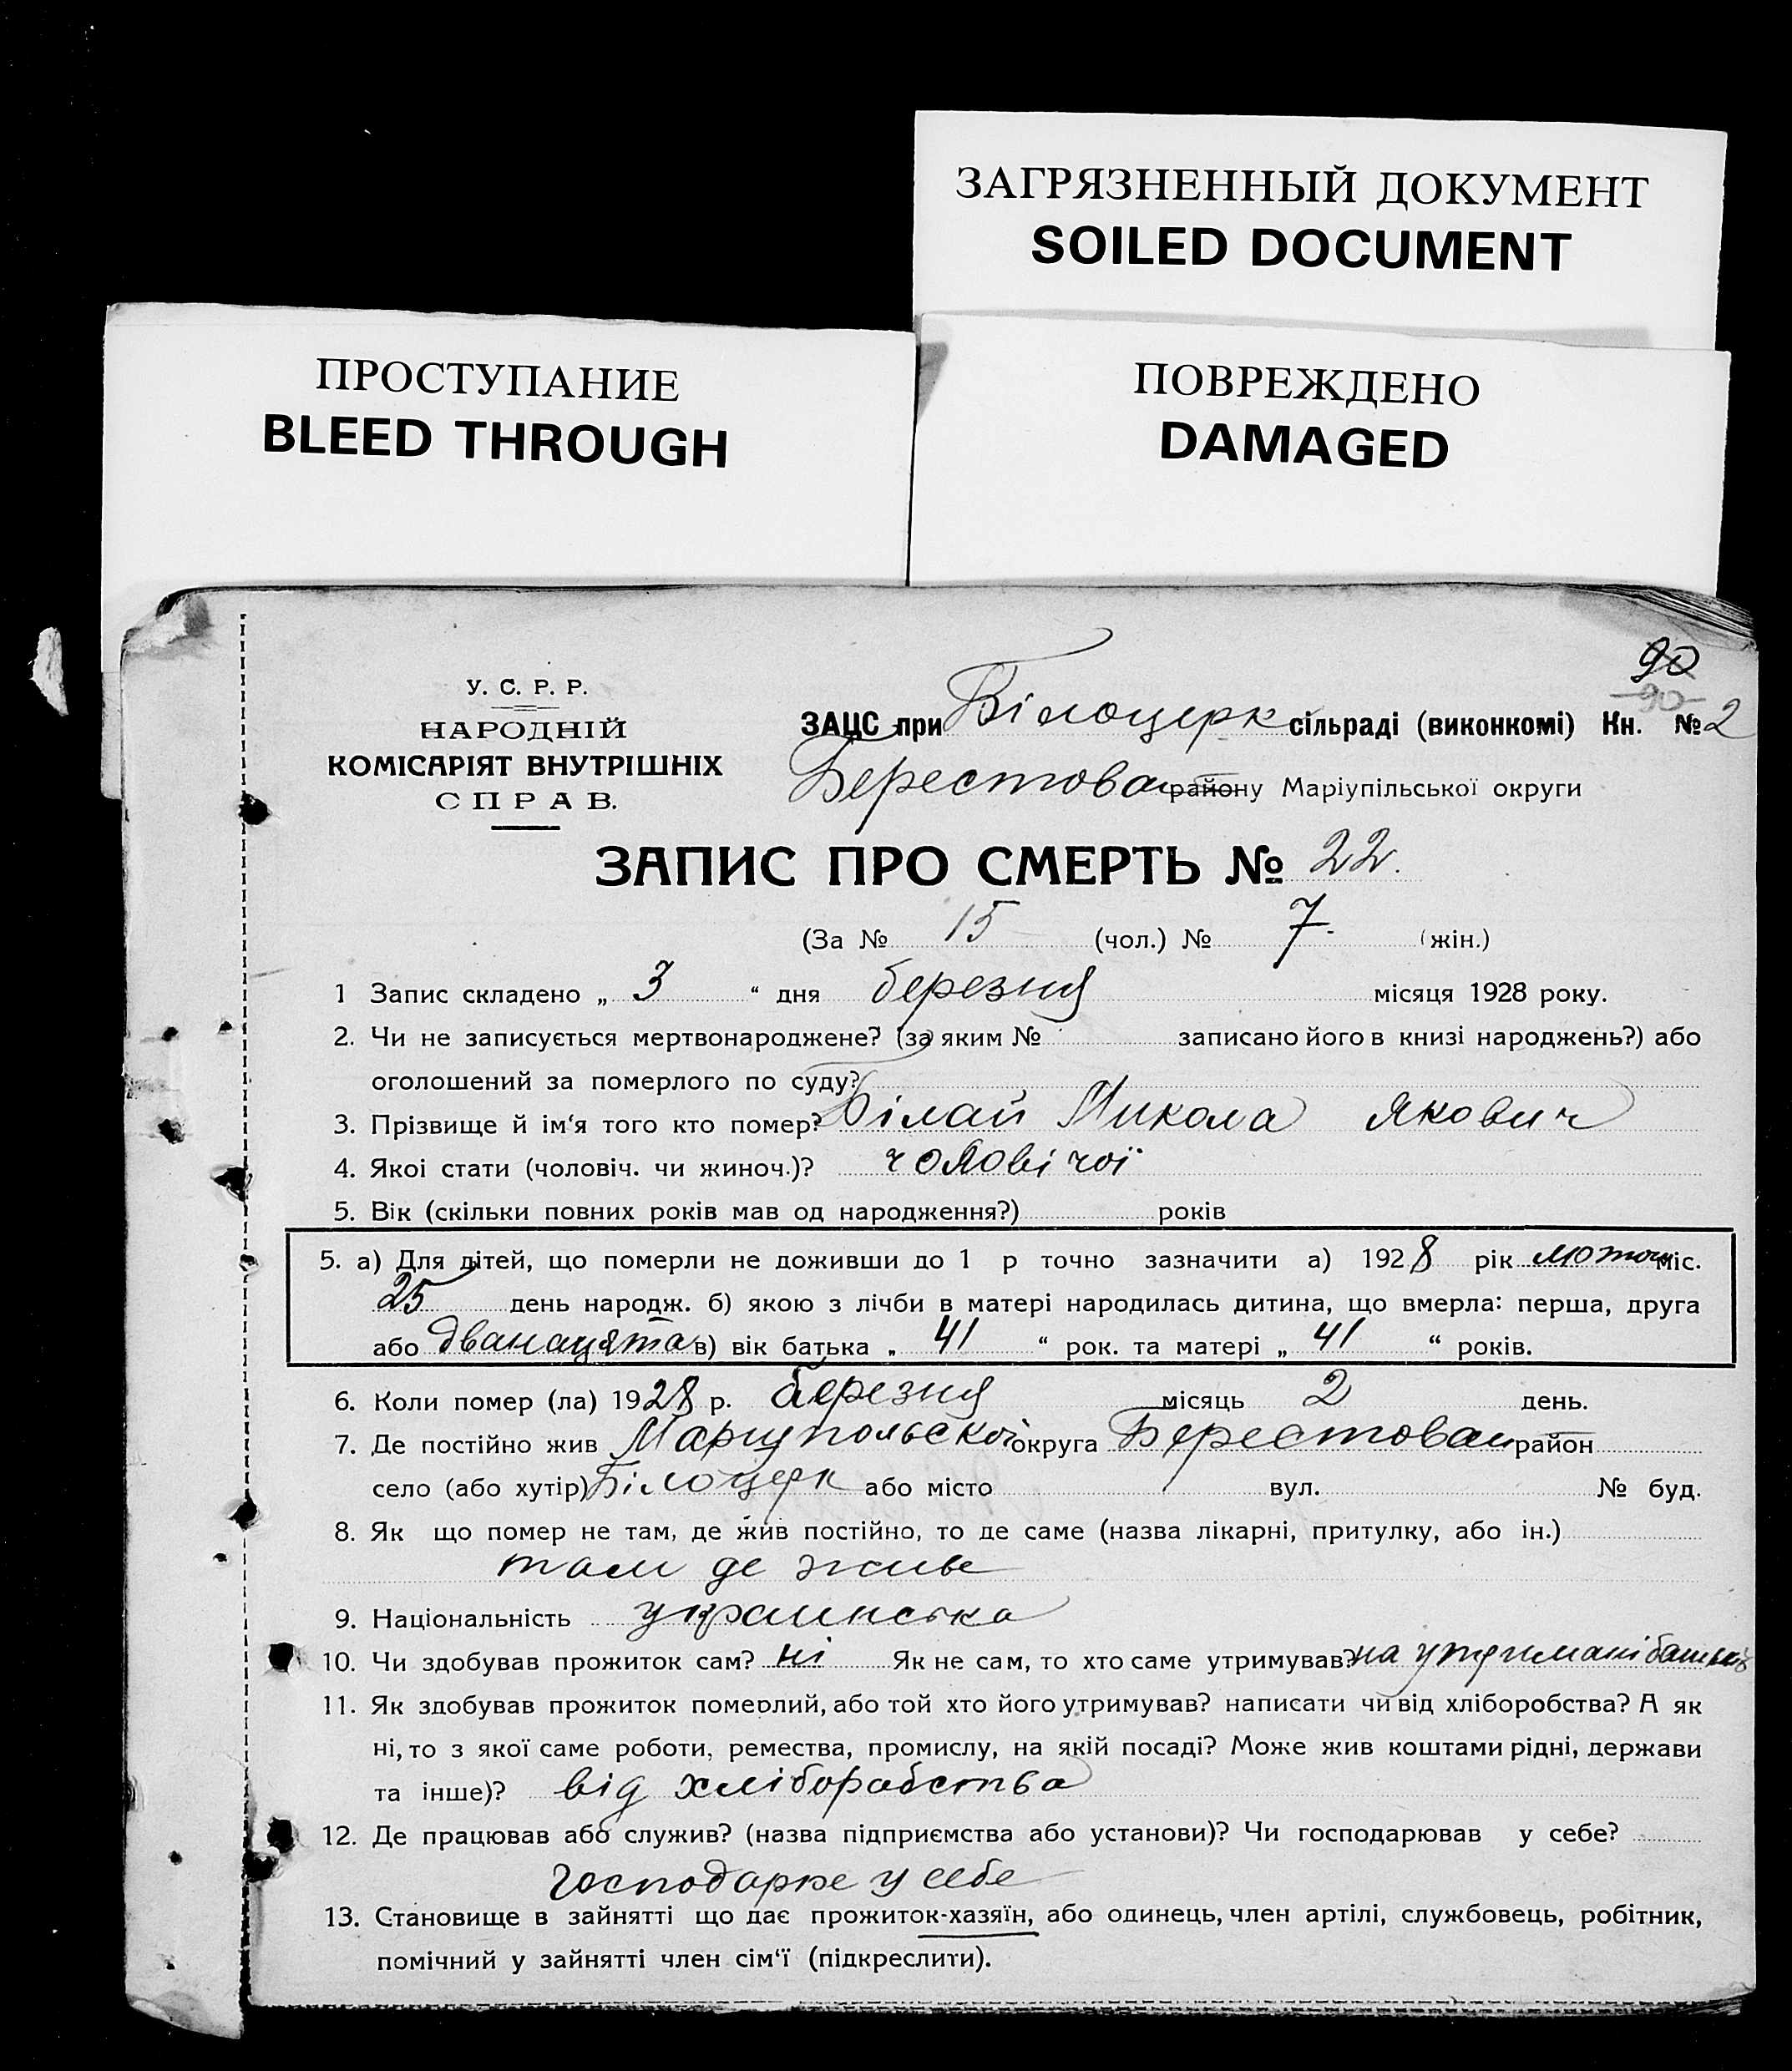 ЗАГРЯЗНЕННЫЙ ДОКУМЕНТ
SOILED DOCUMENT
ПРОСТУПАНИЕ
BLEED THROUGH
ПОВРЕЖДЕНО
DAMAGED
90
90
У. С. Р. Р.
НАРОДНІЙ
КОМІСАРІЯТ ВНУТРІШНІХ
СПРАВ.
ЗАЦС при Білоцерк сільраді (виконкомі) Кн. № 2
Берестован району Маріупільської округи
ЗАПИС ПРО СМЕРТЬ № 22.
(За № 15 (чол.) № 7 (жін.)
1 Запис складено „ 3 “ дня березня місяця 1928 року.
2. Чи не записується мертвонароджене? (за яким № записано його в книзі народжень?) або
оголошений за померлого по суду?
3. Прізвище й ім‘я того кто помер? Білай Микола Якович
4. Якоі стати (чоловіч. чи жиноч.)? чоловічої
5. Вік (скільки повних років мав од народження?) років
5. а) Для дітей, що померли не доживши до 1 р точно зазначити а) 1928 рік лютого міс.
25 день народж. б) якою з лічби в матері народилась дитина, що вмерла: перша, друга
або дванацята в) вік батька „ 41 “ рок. та матері „ 41 “ років.
6. Коли помер (ла) 1928 р. березня місяць 2 день.
7. Де постійно жив Маріупольської округа Берестован район
село (або хутір) Білоцерк або місто вул. № буд.
8. Як що помер не там, де жив постійно, то де саме (назва лікарні, притулку, або ін.)
там де живе
9. Національність украинська
10. Чи здобував прожиток сам? ні Як не сам, то хто саме утримував? на утримані батьків
11. Як здобував прожиток померлий, або той хто його утримував? написати чи від хліборобства? А як
ні, то з якої саме роботи, ремества, промислу, на якій посаді? Може жив коштами рідні, держави
та інше)? від хліборабства
12. Де працював або служив? (назва підприємства або установи)? Чи господарював у себе?
Господарює у себе
13. Становище в зайнятті що дає прожиток-хазяїн, або одинець, член артілі, службовець, робітник,
помічний у зайнятті член сім‘ї (підкреслити).